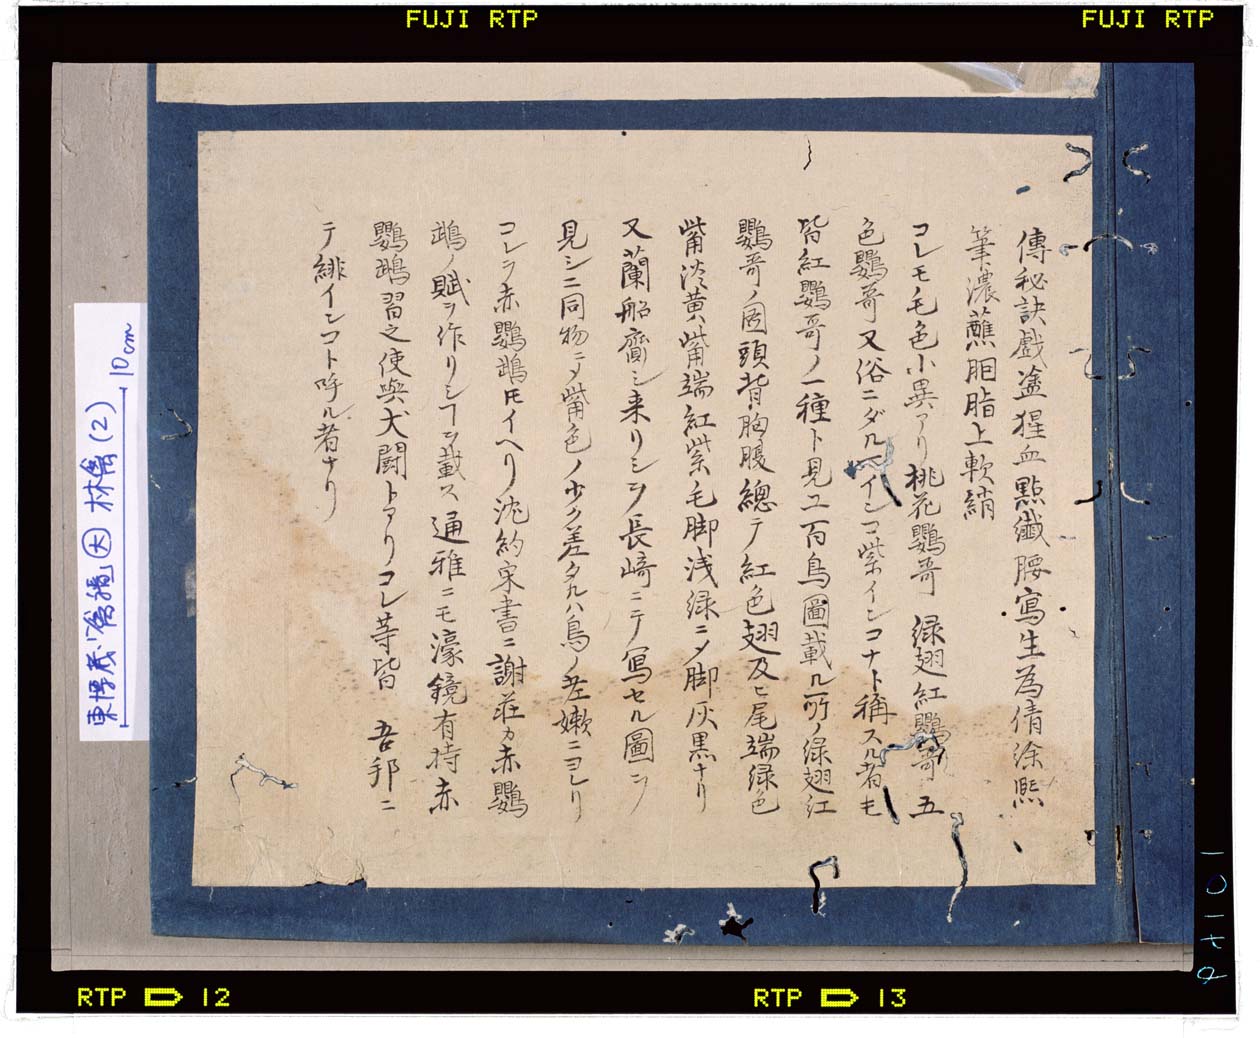 FUJI RTP
FUJI RTP
傳秘訣戲塗猩血點纖腰寫生為倩涂熈
筆濃蘸胭脂上軟綃
コレモ毛色小異アリ桃花鸚哥 緑翅紅鸚哥 五
色鸚哥又俗ニダルマインコ紫インコナト稱スル者モ
皆紅鸚哥ノ一種ト見ユ百鳥圖載ル所ノ緑翅紅
鸚哥ノ圖頭背胸腹總テ紅色翅及ヒ尾端緑色
觜淡黄觜端紅紫毛脚浅緑ニメ脚灰黒ナリ
又蘭船齎シ来リシヲ長崎ニテ寫セル圖ヲ
見シニ同物ニメ觜色ノ少ク差タルハ鳥ノ老嫩ニヨレリ
コレヲ赤鸚鵡トモイヘリ沈約宋書ニ謝荘カ赤鸚
鵡ノ賦ヲ作リシヿヲ載ス 通雅ニモ濠鏡有持赤
鸚鵡習之使與犬闘トアリコレ等皆 吾邦ニ
テ緋インコト呼ル者ナリ
10cm
林禽(2)
RTP 12
RTP 13